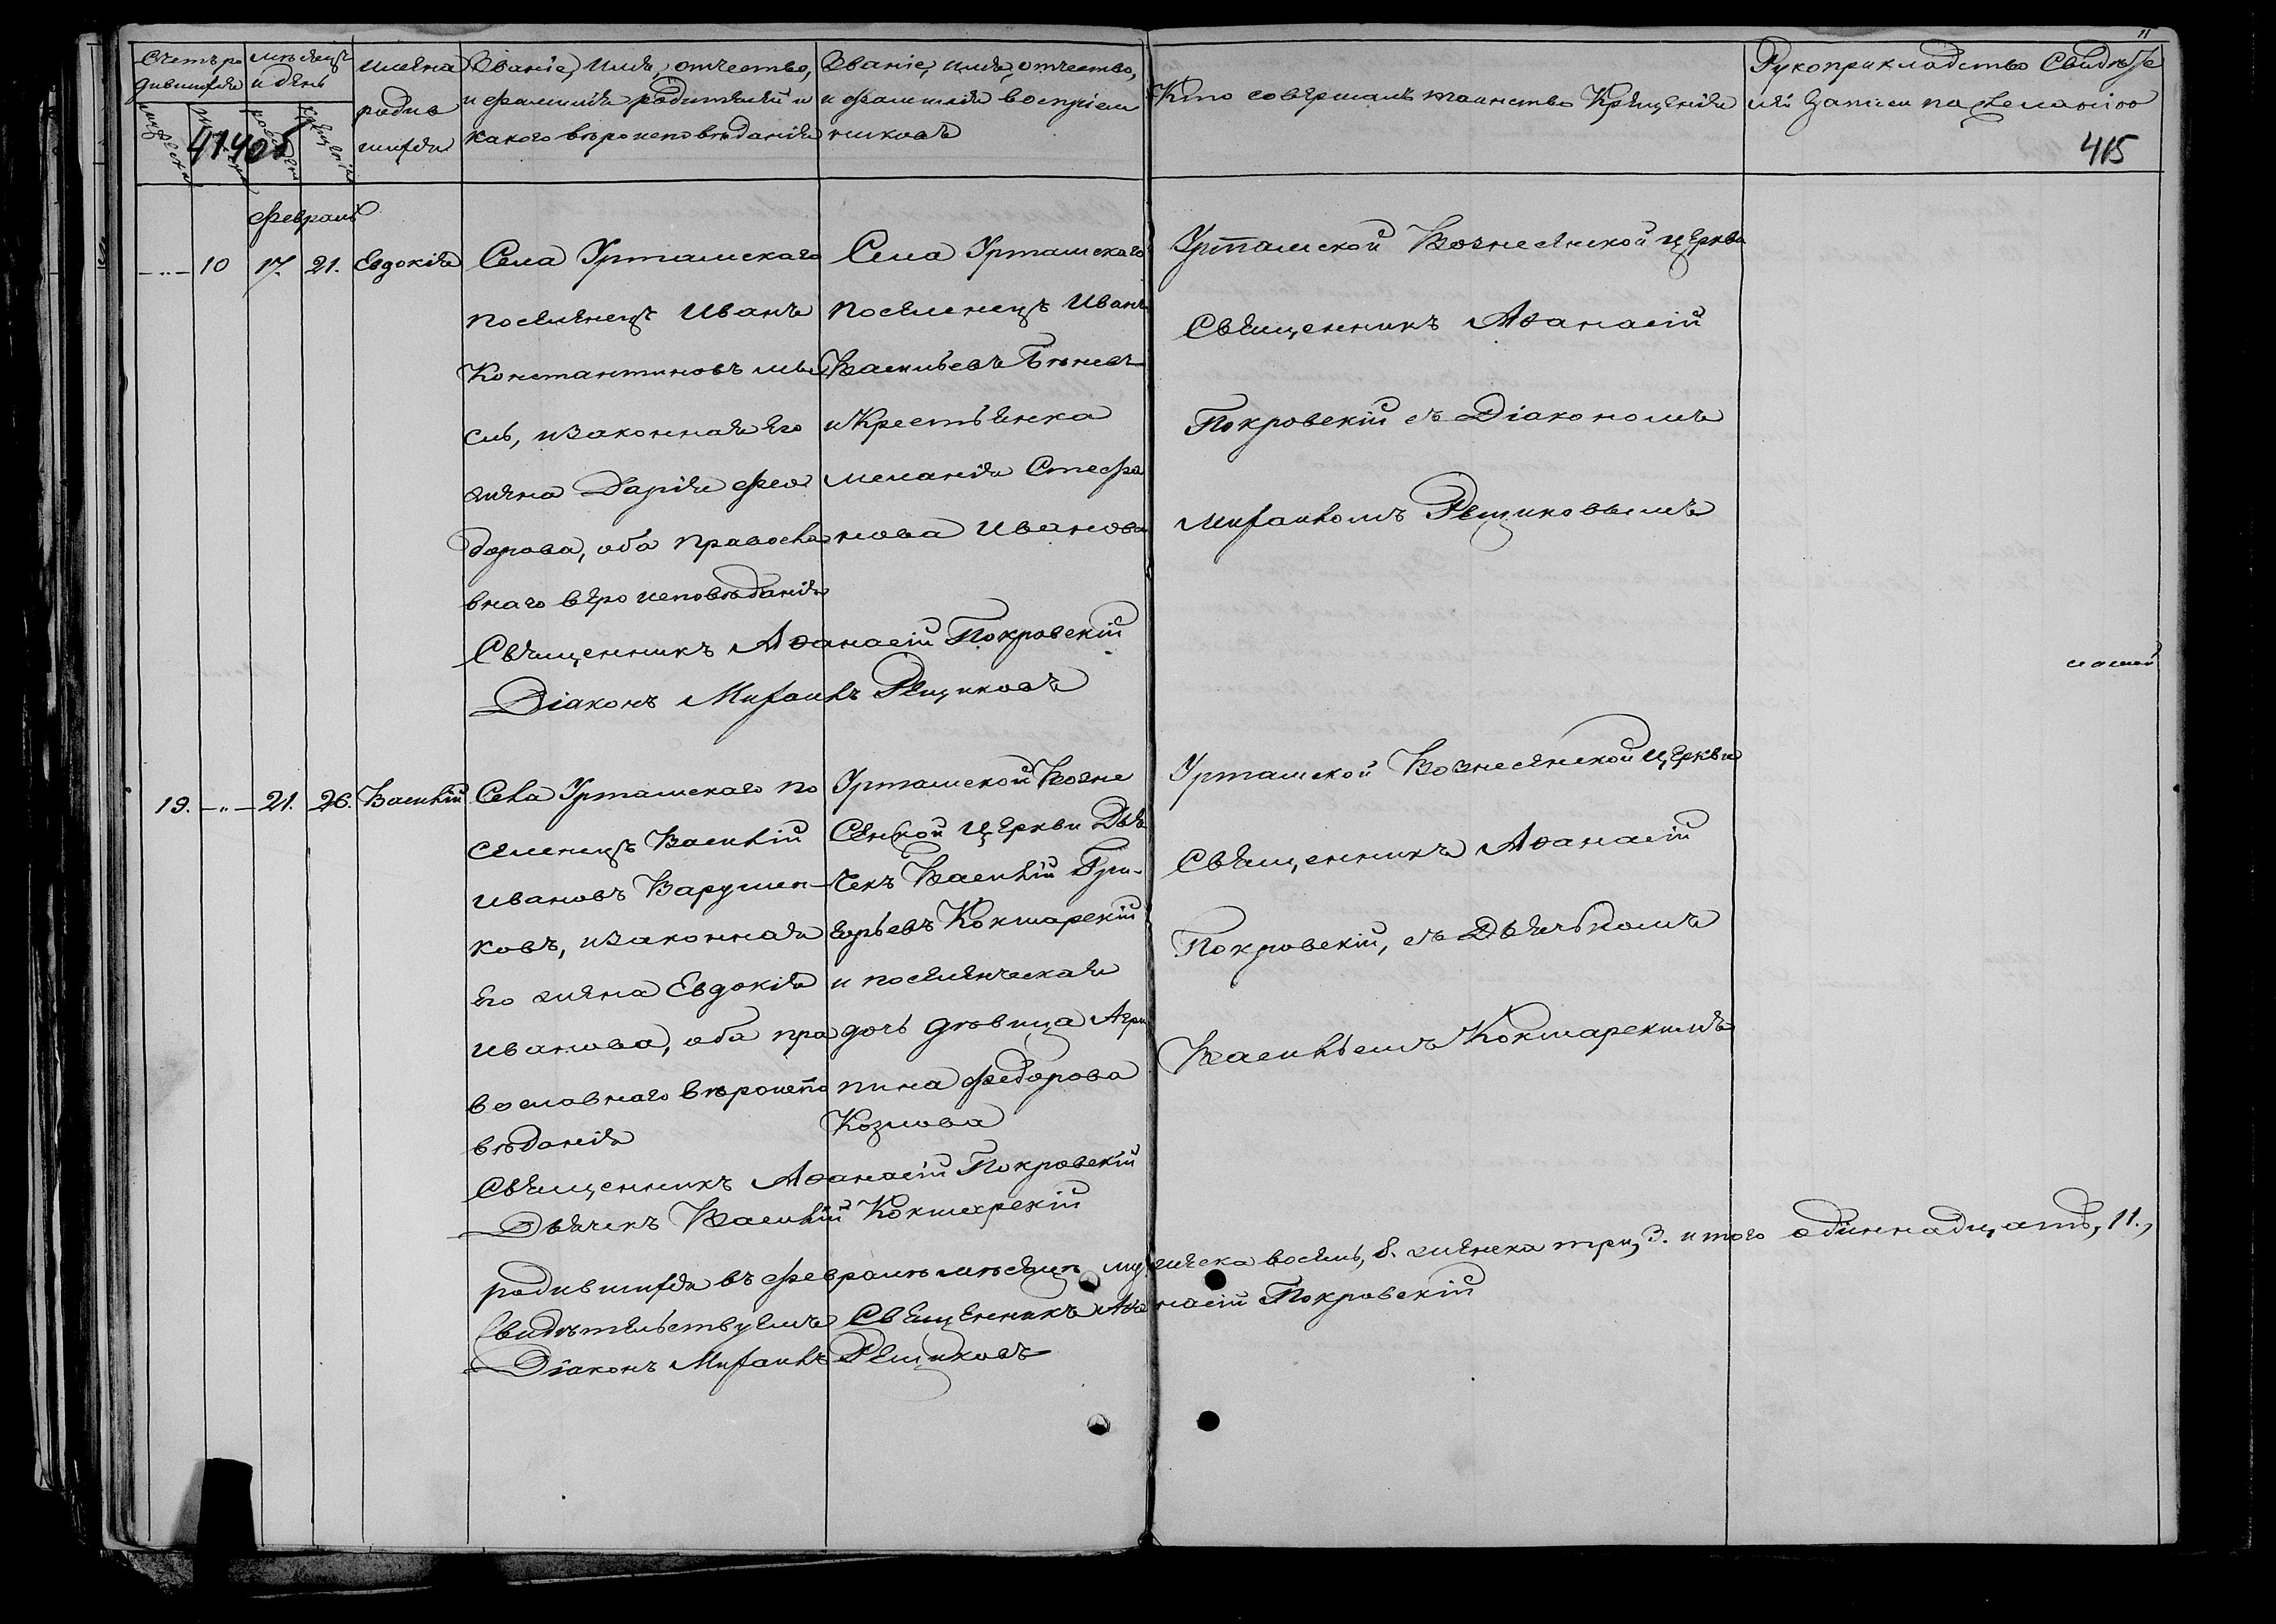 11
Счетъ ро
дившихся
мужеска
женска
мѣсяцъ
и день
рожденія
крещенія
имена
родив
шихся
Званіе, имя, отчество,
и фамилія родителей и
какого вѣроисповѣданія
Званіе, имя, отчество,
и фамилія воспріем
никовъ
Кто совершалъ таинство Крещенія
Рукоприкладство Свидѣте
лей записи по желанію
414об
415
Февраль
-"- 10 17. 21. Евдокія
Села Уртамскаго
поселенецъ Иванъ
Константиновъ
и законная его
жена Дарія Фео
дорова, оба правосла
внаго вероисповѣданія
Села Уртамскаго
поселенецъ Иванъ
Васильевъ
и Крестьянка
меланія Стефа
нова Иванова
Уртамской Вознесенской церкви
Священникъ Аѳанасій
Покровскій съ Діакономъ
Михаиломъ Рещиковымъ
Священникъ Аѳанасій Покровскій
Діаконъ Михаилъ Рещиковъ
19. -"- 21. 26. Василій
Села Уртамскаго по
селенецъ Василій
Ивановъ Варушен
ковъ, и законная
его жена Евдокія
Иванова, оба пра
вославнаго вѣроиспо
вѣданія
Уртамской Возне
сенской церкви Дья
чекъ Василій Гри-
горьевъ Кокшарскій
и поселенческая
дочь дѣвица Агри
пина Федорова
Козлова
Уртамской Вознесенской церкви
Священникъ Аѳанасій
Покровскій, съ Дьячькомъ
Васильемъ Кокшарскимъ
Священникъ Аѳанасій Покровскій
Дьячекъ Василій Кокшарскій
родившихся въ Февралѣ мѣсяцѣ мужеска восемь, 8. женска три, 3. итого одиннадцать, 11.,
Свидѣтельствуемъ Священникъ Аѳанасій Покровскій
Діаконъ Михаилъ Рещиковъ